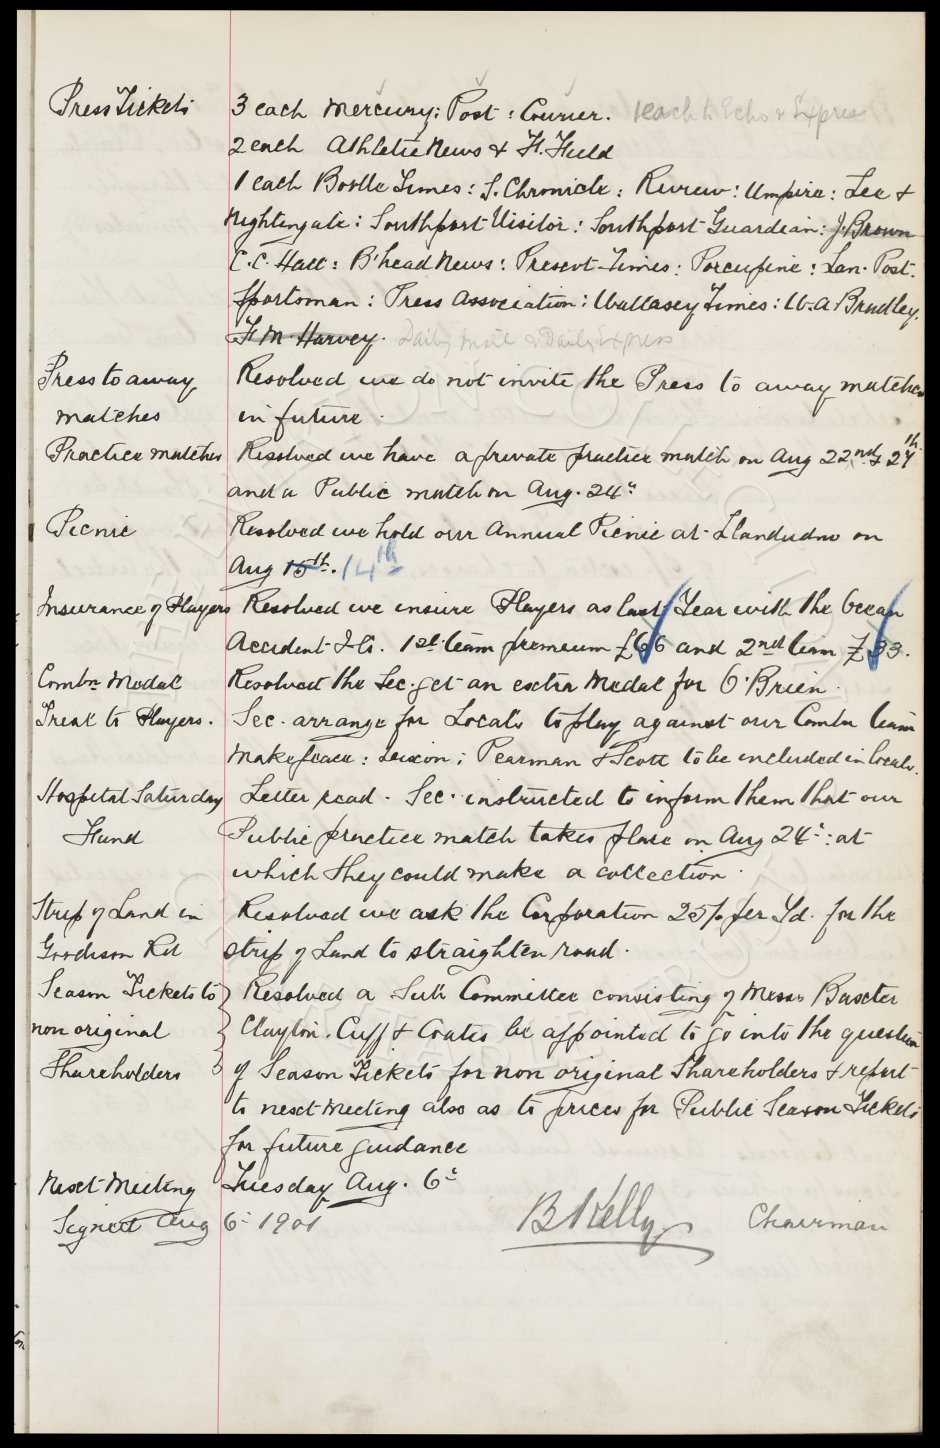 Press Tickets 3 each Mercury: Post: Courier. 1 each to Echo & Express
2 each Athletic News & F. Field
1 each Bootle Times: S. Chronicle: Review: Umpire: Lee &
Nightingale: Southport Visitor: Southport Guardian: J. Brown
C.C. Hall: B'head News: Prescot Times: Porcupine: Lan. Post.
Sportsman: Press Association: Wallasey Times: W.A. Bradley.
F M Harvey. Daily Mail & Daily Express
Press to away Resolved we do not invite the Press to away matches
matches in future.
Practice matches Resolved we have a private practice match on Aug 22nd & 27th
and a Public match on Aug. 24th
Picnic Resolved we hold our Annual Picnic at Llandudno on
Aug 15th. 14th
Insurance of Players Resolved we insure Players as last Year with the Ocean
Accident & Co. 1st team premium £66 and 2nd team £33.
Combn Medal Resolved the Sec. get an extra Medal for O'Brien.
Treat to Players. Sec. arrange for Locals to play against our Combn team
Makepeace: Dixon: Pearman & Scott to be included in locals.
Hospital Saturday Letter read. Sec. instructed to inform them that our
Fund Public practice match takes place on Aug 24th: at
which they could make a collection.
Strip of Land in Resolved we ask the Corporation 25/- per Yd. for the
Goodison Rd strip of Land to straighten road.
Season Tickets to Resolved a Sub Committee consisting of Messrs Baxter
non original Clayton. Cuff & Coates be appointed to go into the question
Shareholders of Season Tickets for non original Shareholders & report
to next Meeting also as to prices for Public Season Tickets
for future guidance
Next Meeting Tuesday Aug. 6th
Signed Aug 6th 1901 B Kelly Chairman